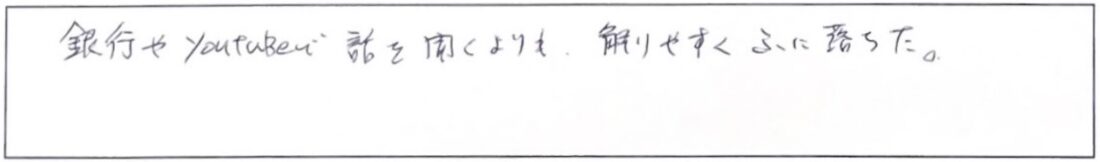 銀行やYouTubeで話を聞くよりも、解りやすくふに落ちた。